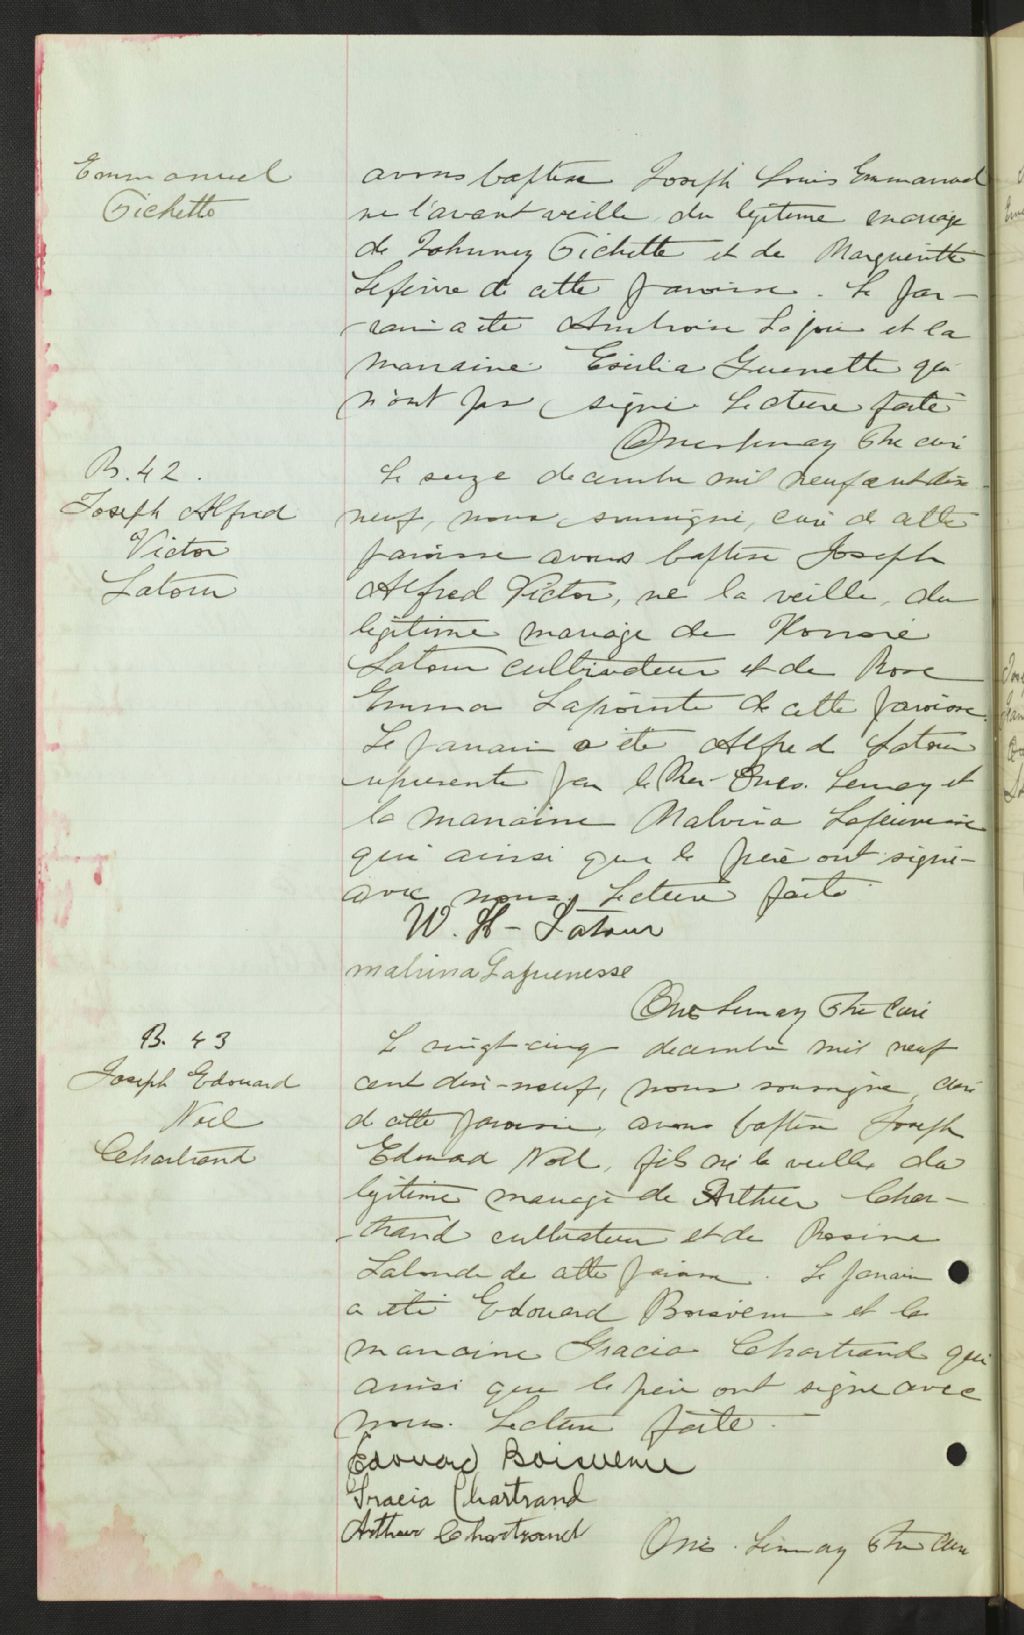 Emmanuel
Pichette
avons baptisé Joseph Louis Emmanuel
né l'avant veille, du légitime mariage
de Johnney Pichette et de Margueritte
Lefevre de cette paroisse. Le par-
rain a été Ambroise Lajoie et la
marraine Guenette qui
n'ont pas signé Lecture faite
Lemay Ptre curé
B. 42.
Joseph Alfred
Victor
Latour
Le seize decembre mil neuf cent dix
neuf, nous soussigné, curé de cette
paroisse avons baptisé Joseph
Alfred Victor, né la veille, du
légitime mariage de Honoré
Latour cultivateur et de Rose
Emma Lapointe de cette paroisse.
Le parrain a été Alfred Latour
représenté par le Rev. Ones. Lemay et
la marraine Malvina Lajeunesse
qui ainsi que le père ont signé
avec nous. Lecture faite
W. H - Latour
malvina Lajeunesse
One Lemay Ptre Curé
B. 43
Joseph Edouard
Noel
Chartrand
Le vingt-cinq decembre mil neuf
cent dix-neuf, nous soussigné, curé
de cette paroisse, avons baptisé Joseph
Edouard Noël, fils né la veille du
légitime mariage de Arthur Char-
-trand cultivateur et de Rosina
Lalonde de cette paroisse. Le parrain
a été Edouard Boisvenu et la
marraine Gracia Chartrand qui
ainsi que le père ont signé avec
nous. Lecture faite.
Edouard Boisvenue
Gracia Chartrand
Arthur Chartrand
One. Lemay Ptre Curé